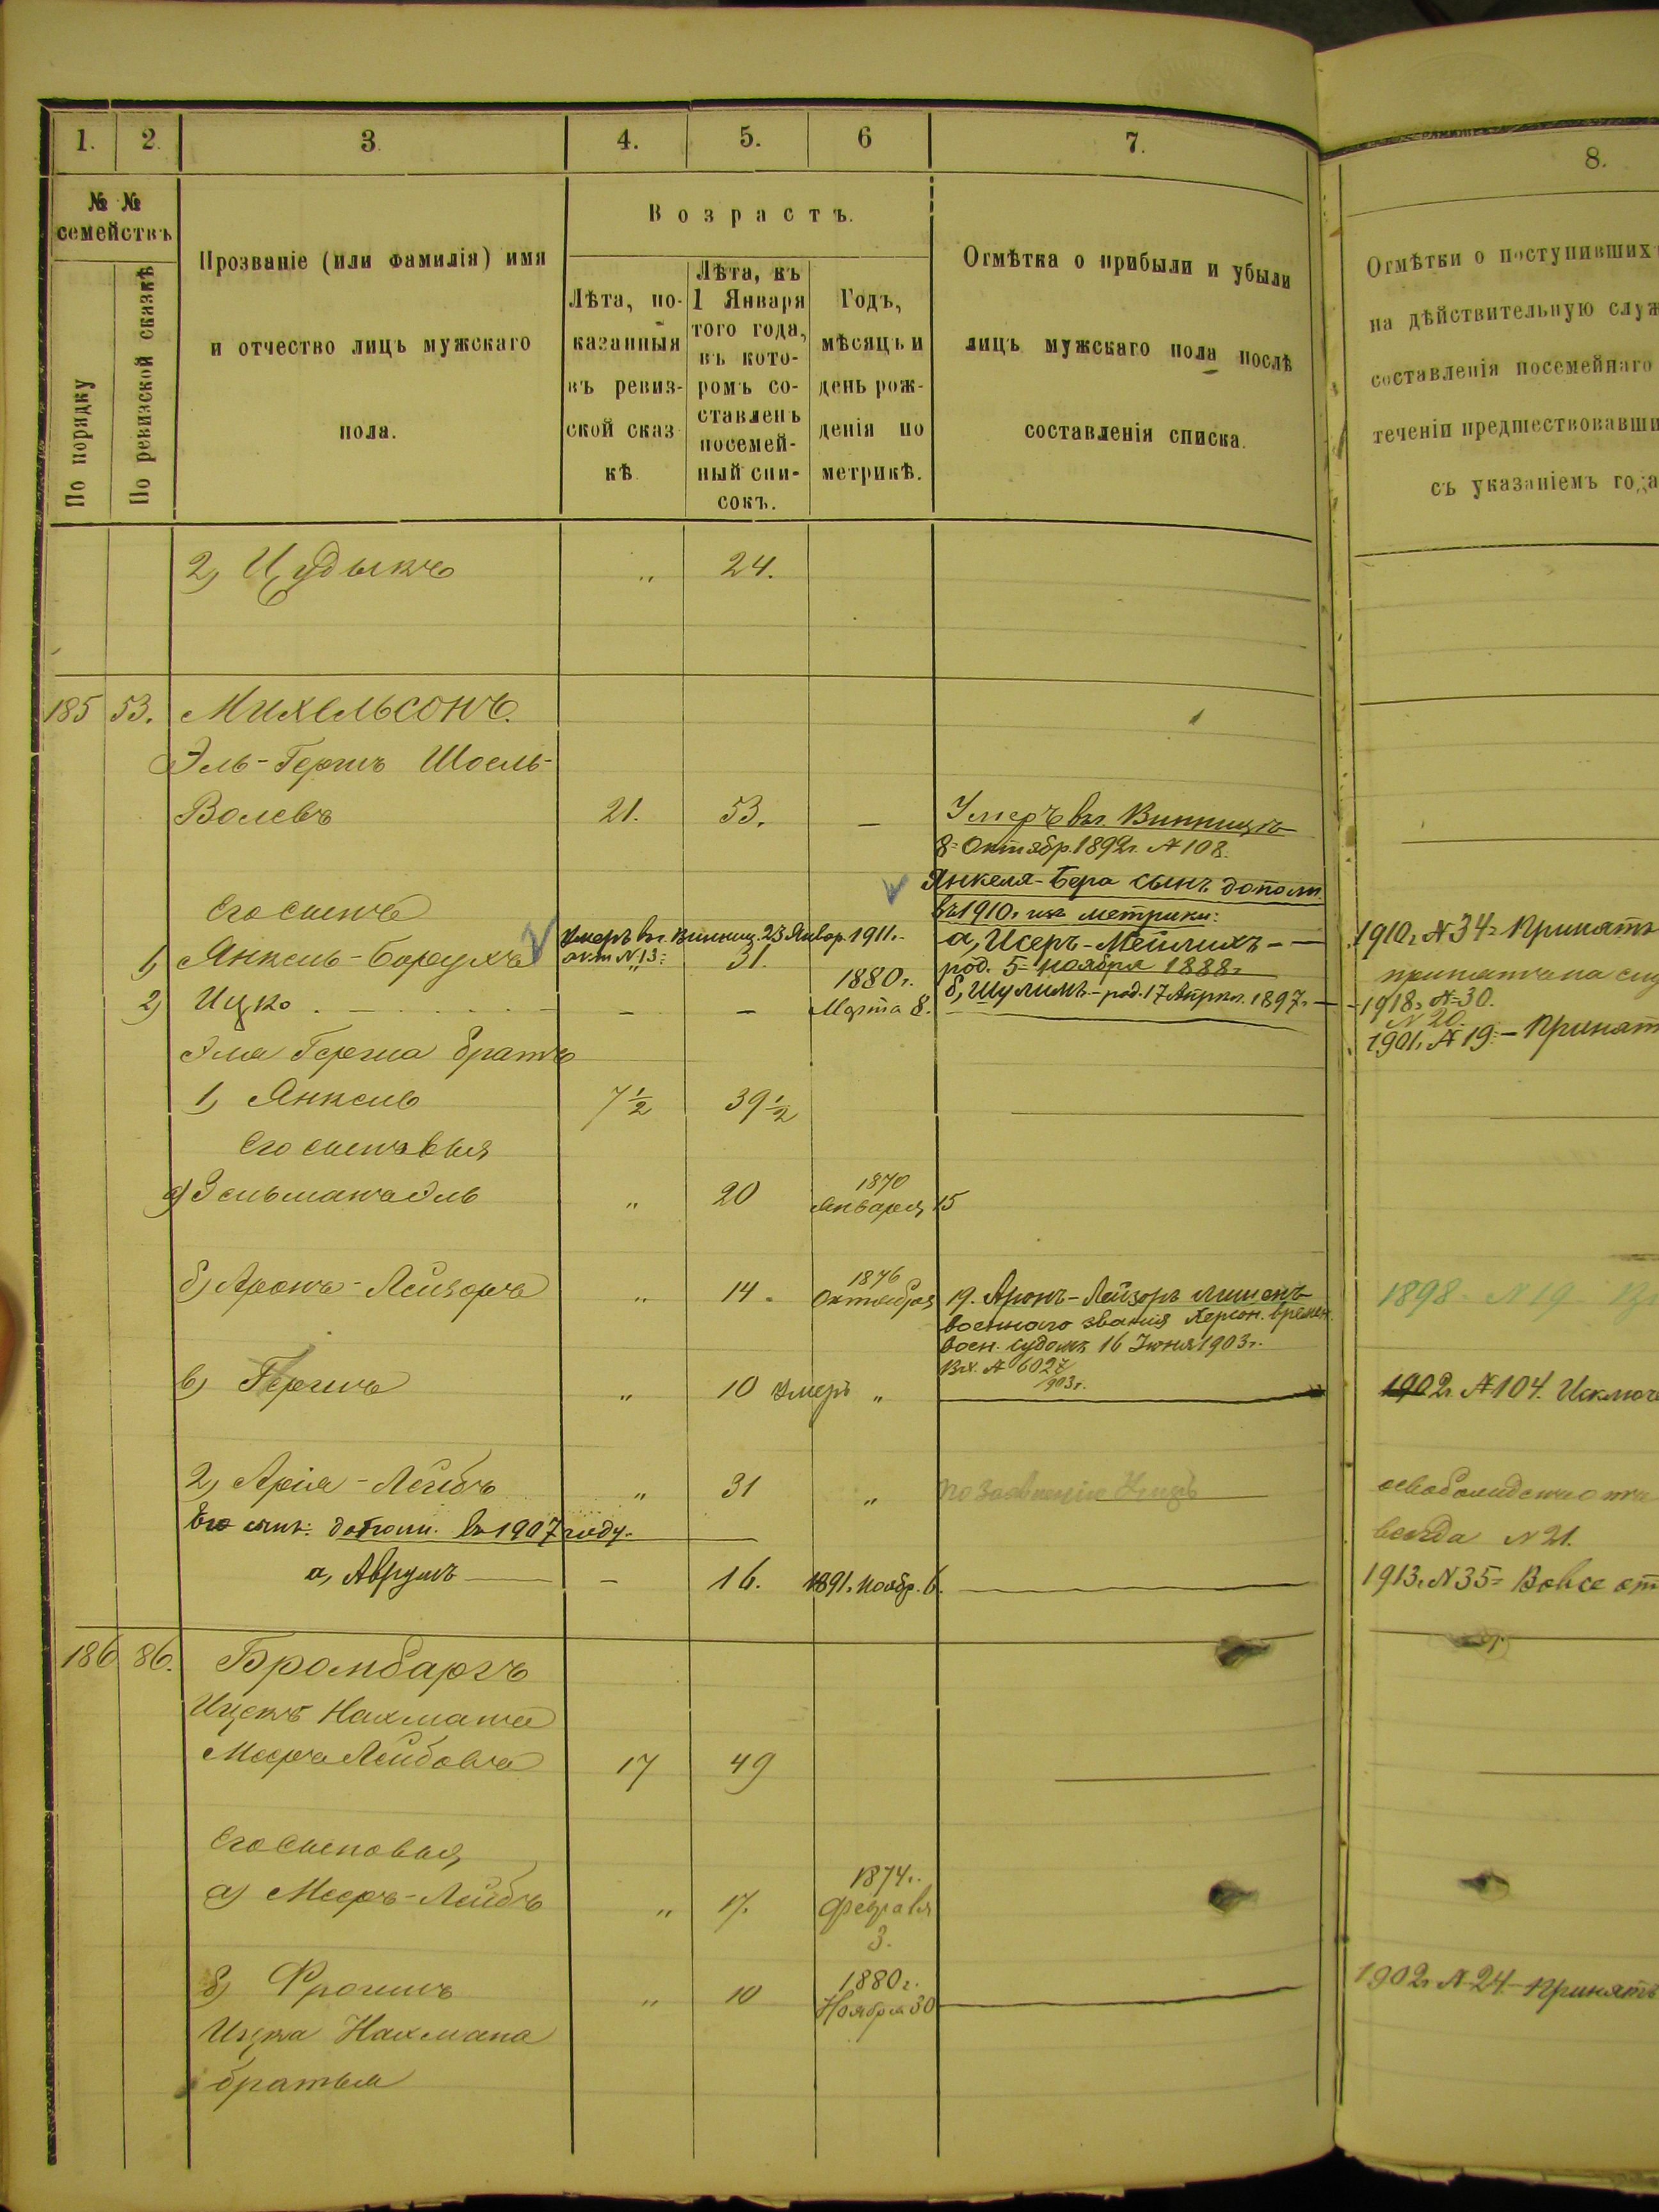 1. 2. 3. 4. 5. 6 7. 8.
№ №
семействъ
По порядку
По ревизской сказкѣ
Прозваніе (или фамилія) имя
и отчество лицъ мужскаго
пола.
Возрастъ.
Лѣта, по-
казанныя
въ ревиз-
ской сказ
кѣ
Лѣта, къ
1 Января
того года,
въ кото-
ромъ со-
ставленъ
посемей-
ный спи-
сокъ.
Годъ,
мѣсяцъ и
день рож-
денія по
метрикѣ.
Отмѣтка о прибыли и убыли
лицъ мужскаго пола послѣ
составленія списка.
Отмѣтки о поступивших
на дѣйствительную служ
составленія посемейнаго
теченіи предшествовавши
съ указаніемъ года
2) Цудыкъ „ 24.
185 53. Михельсонъ.
Эль-Гершъ Шоель-
Волевъ 21. 53. —
Умеръ въ г. Винницѣ
8 Октябр. 1892 г. № 108.
Янкеля-Бера сынъ дополн.
въ 1910 г. изъ метрики:
Его сынъ
Умеръ въ г. Винниц. 23 Январ. 1911 г.
акт № 13
1) Янкель-Борухъ „ 31.
а, Исеръ-Мейлихъ —
род. 5 ноября 1888 г.
1910 г. № 34 Принятъ
2) Ицко — — 1880 г.
Марта 8.
б, Шулимъ — род. 17 Апрѣл. 1897 г. —
1918 г. № 30.
№ 20.
1901 г. № 19 — Принят
Эля Герша братъ
1) Янкель 7 ½ 39 ½
Его сыновья
а) Зельманъ Эль „ 20 1870
Января 15
б) Аронъ-Лейзоръ „ 14. 1876
Октября 19.
Аронъ-Лейзоръ лишенъ
военнаго званія Херсон. времен.
воен. судомъ 16 Іюня 1903 г.
Вх. № 6027
903 г.
1898 № 19
в) Гершъ „ 10 Умеръ „
1902 г. № 104. Исключ
2) Арія-Лейбъ „ 31 „
по заявленію
освобожденъ
№ 21.
Его сынъ: дополн. въ 1907 году.
а, Аврумъ — — 16. 1891 г. Ноябр. 6.
1913 г. № 35 Вовсе
186 86. Бромбаргъ
Ицекъ Нахманъ
Мееръ Лейбовъ 17 49
Его сыновья
а) Мееръ-Лейбъ „ 17. 1874 г.
Февраля
3.
б) Фроимъ „ 10 1880 г.
Ноября 30
1902 г. № 24 — Принятъ
Ицка Нахмана
братья